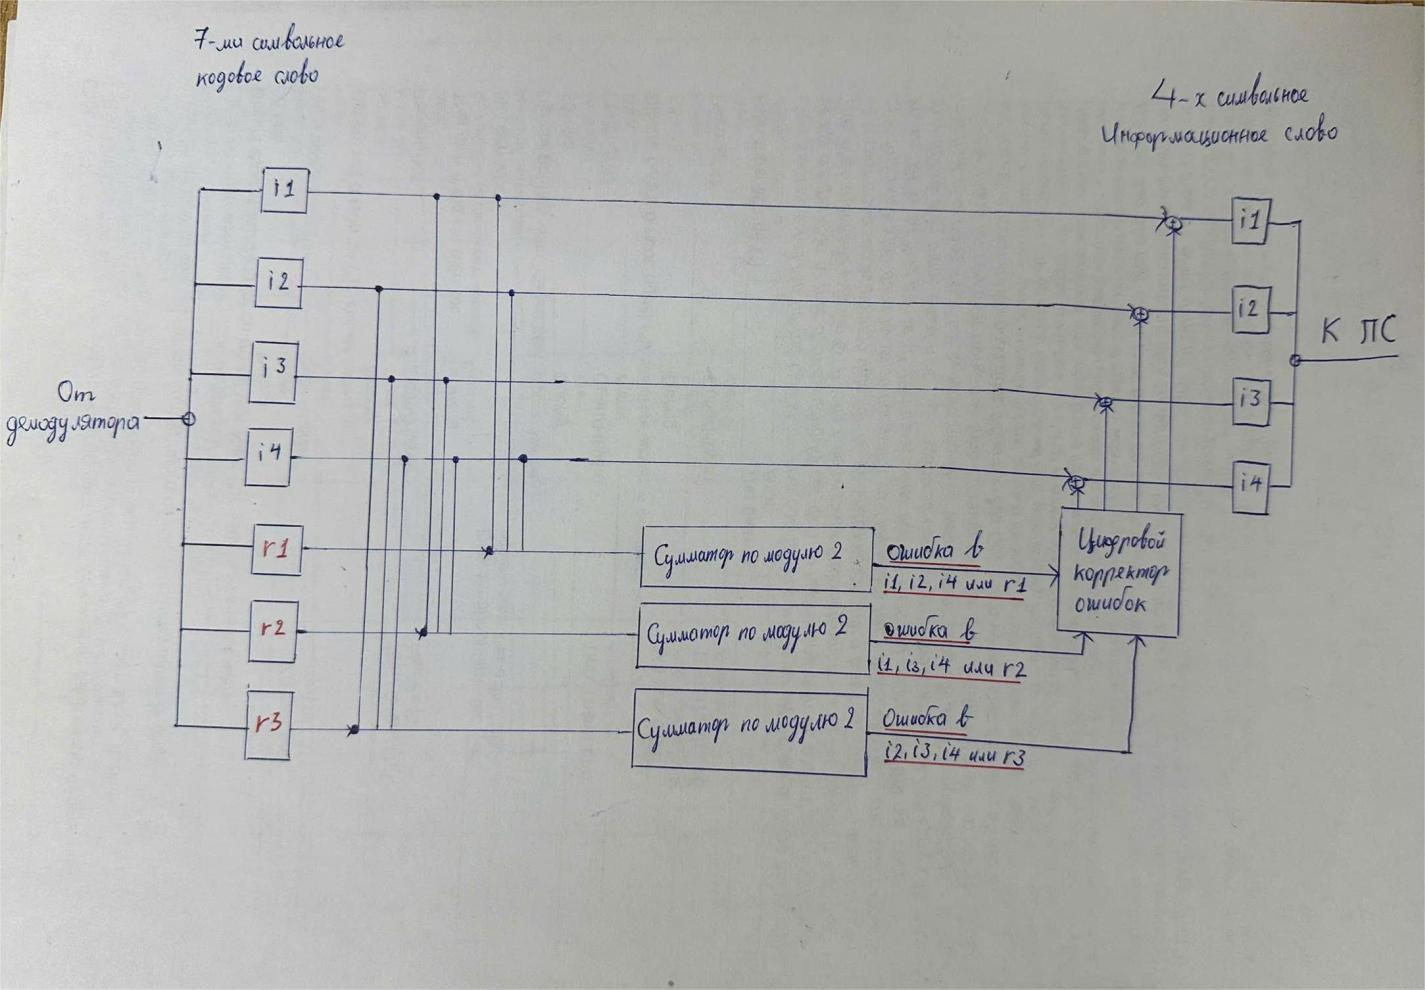 7-ми символьное
кодовое слово
4-х символьное
Информационное слово
i1
i2
i3
i4
r1
r2
r3
От
демодулятора
Сумматор по модулю 2
Ошибка в
i1, i2, i4 или r1
Сумматор по модулю 2
Ошибка в
i1, i3, i4 или r2
Сумматор по модулю 2
Ошибка в
i2, i3, i4 или r3
Цифровой
корректор
ошибок
i1
i2
i3
i4
К ПС